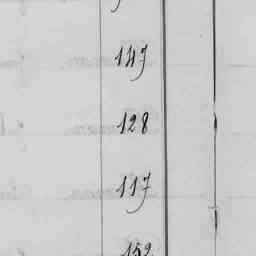 147
128
117
152